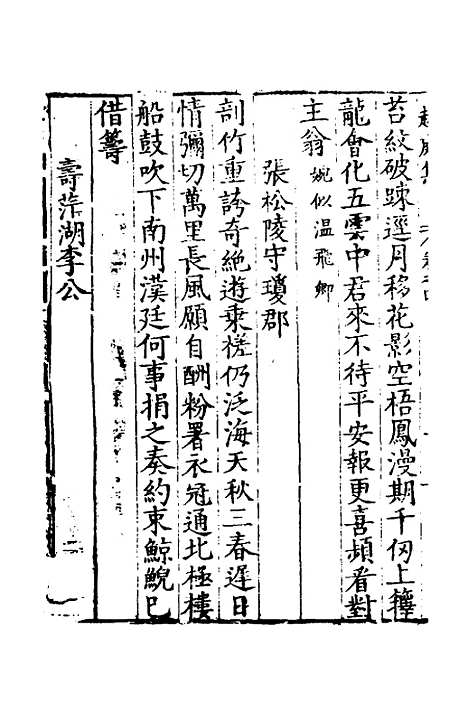 苔紋破踈逕月移花影空梧鳳漫期千仞上籜
龍會化五雲中君來不待平安報更喜頻看對
主翁婉似温飛卿
張松陵守瓊郡
剖竹重誇奇絶遊乗槎仍泛海天秋三春遲日
情彌切萬里長風願自酬粉署衣冠通北極樓
船鼓吹下南州漢廷何事捐之奏約束鯨鯢已
借籌
壽萍湖李公